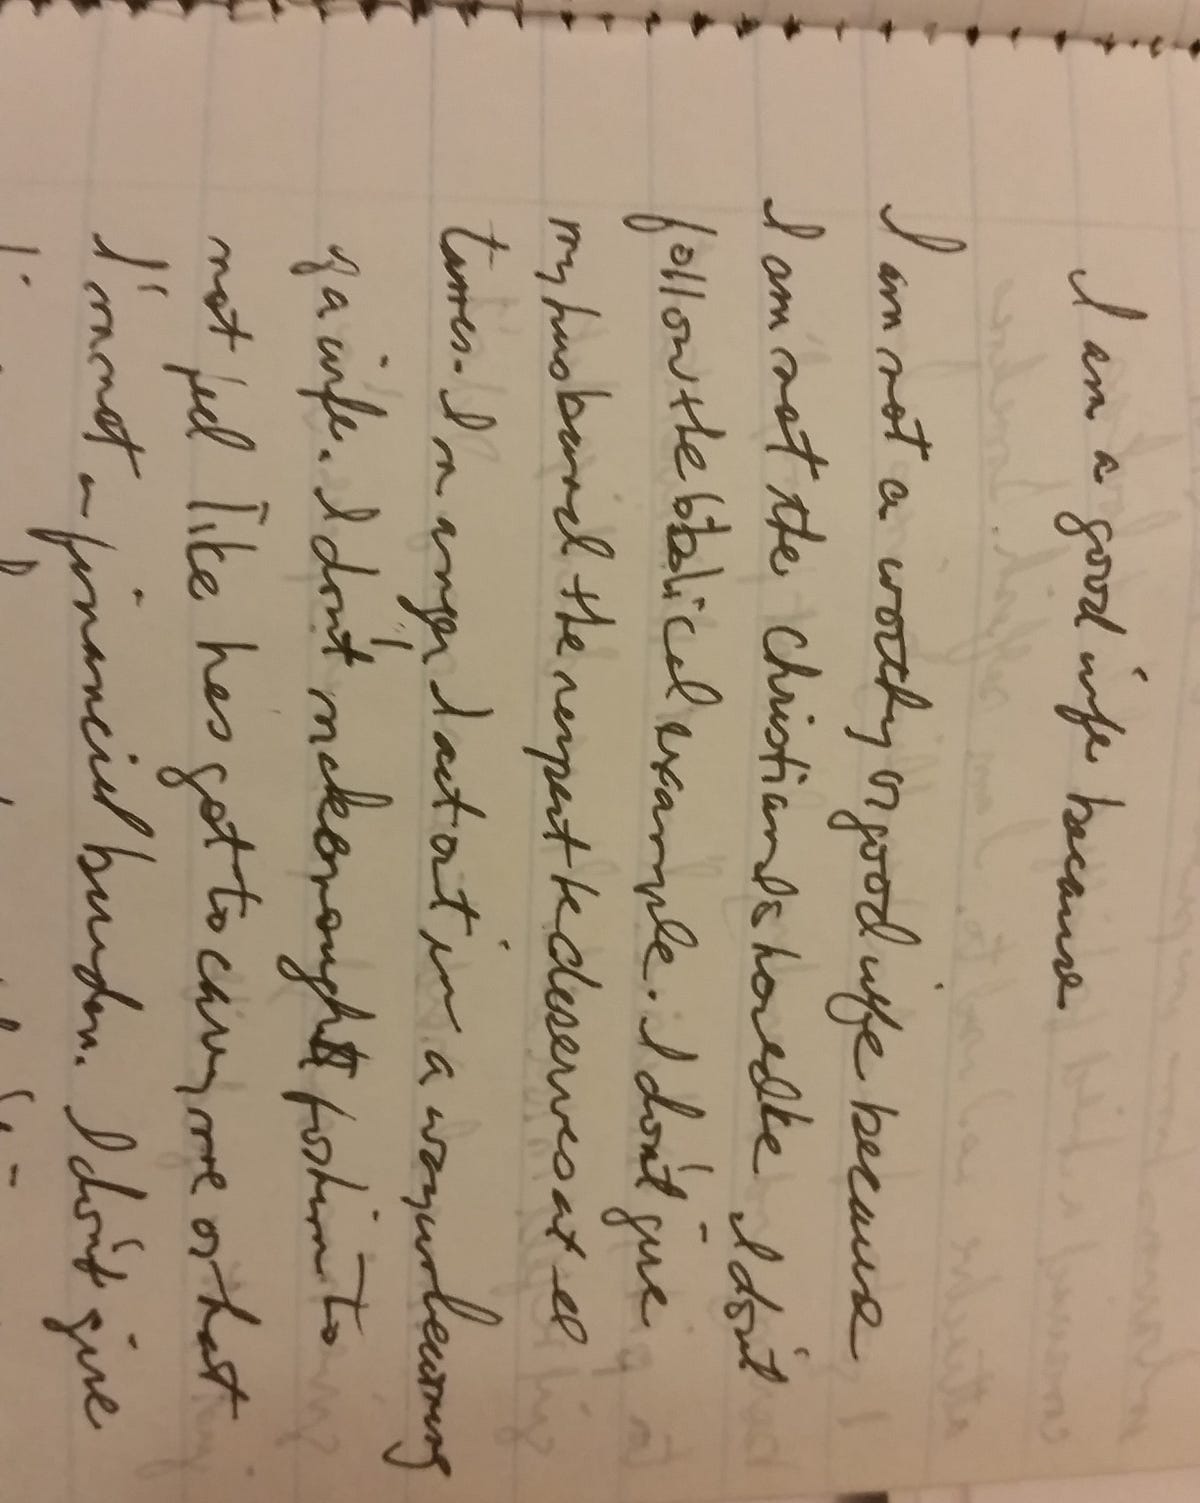 I am a good wife because
I am not a worthy or good wife because
I am not the Christian I should be I don't
follow the biblical example. I don't give
my husband the respect he deserves at all
times. In anger I act out in a way unbecoming
of a wife. I don't make enough for him to
not feel like hes got to carry me or that
I'm not a financial burden. I don't give